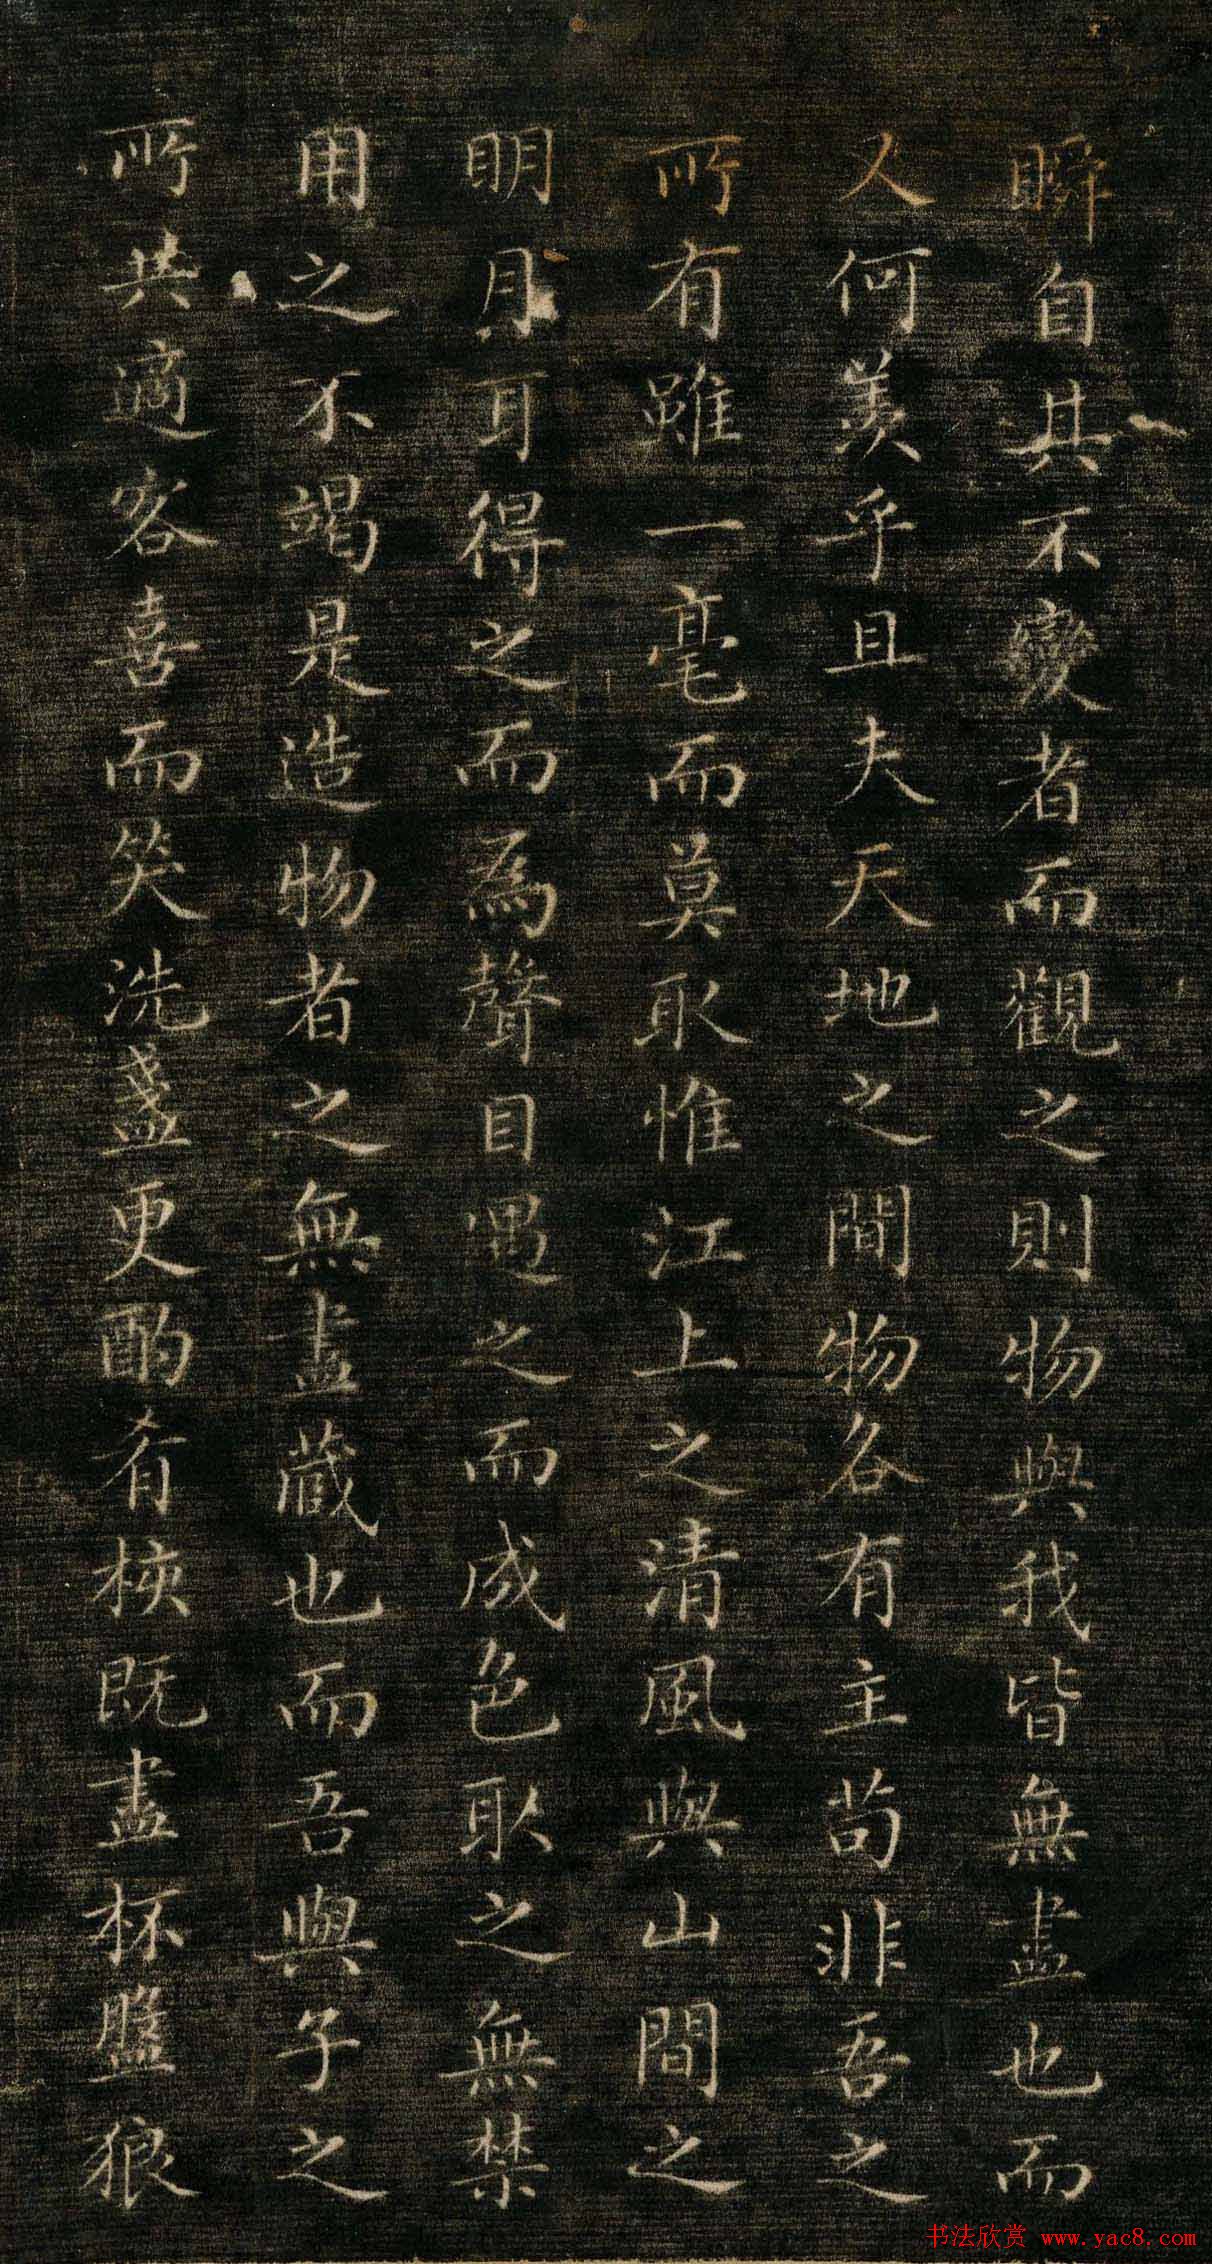 瞬自其不變者而觀之則物與我皆無盡也而
又何羨乎且夫天地之間物各有主苟非吾之
所有雖一毫而莫取惟江上之清風與山間之
明月耳得之而為聲目遇之而成色取之無禁
用之不竭是造物者之無盡藏也而吾與子之
所共適客喜而笑洗盞更酌肴核既盡杯盤狼
书法欣赏 www.yac8.com